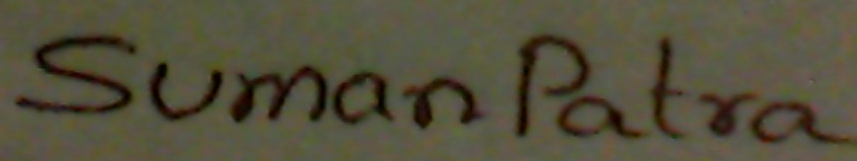 Suman Patra